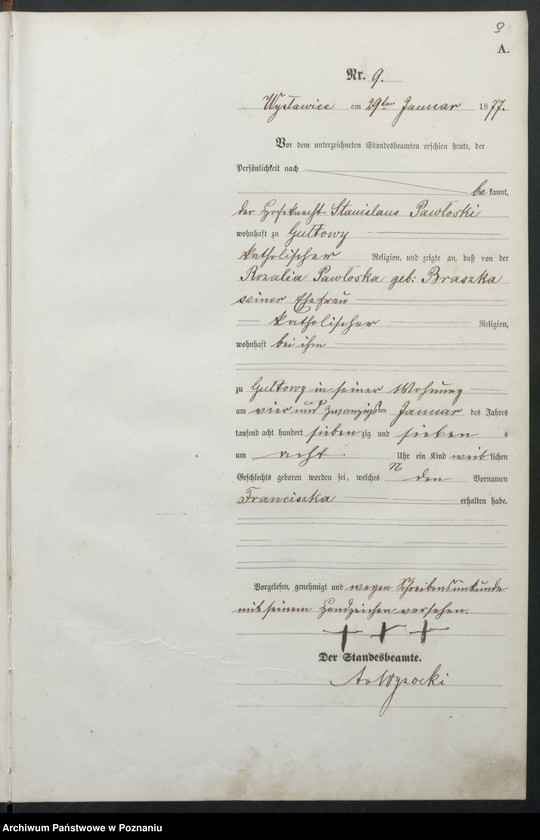 9
A.
Nr. 9.
am 29ten Januar 1877.
Vor dem unterzeichneten Standesbeamten erschien heute, der
Persönlichkeit nach
bekannt,
der Hofeknecht Stanislaus Pawłoski
wohnhaft zu Gułtowy
katholischer Religion, und zeigte an, daß von der
Rozalia Pawłoska geb: Braszka
seiner Ehefrau
katholischer Religion,
wohnhaft bei ihm
zu Gułtowy in seiner Wohnung
am vier und zwanzigsten Januar des Jahres
tausend acht hundert siebenzig und sieben
um acht Uhr ein Kind weiblichen
Geschlechts geboren worden sei, welches den Vornamen
Franciszka erhalten habe.
Vorgelesen, genehmigt und wegen Schreibensunkunde
mit seinem Handzeichen versehen.
+ + +
Der Standesbeamte.
Archiwum Państwowe w Poznaniu